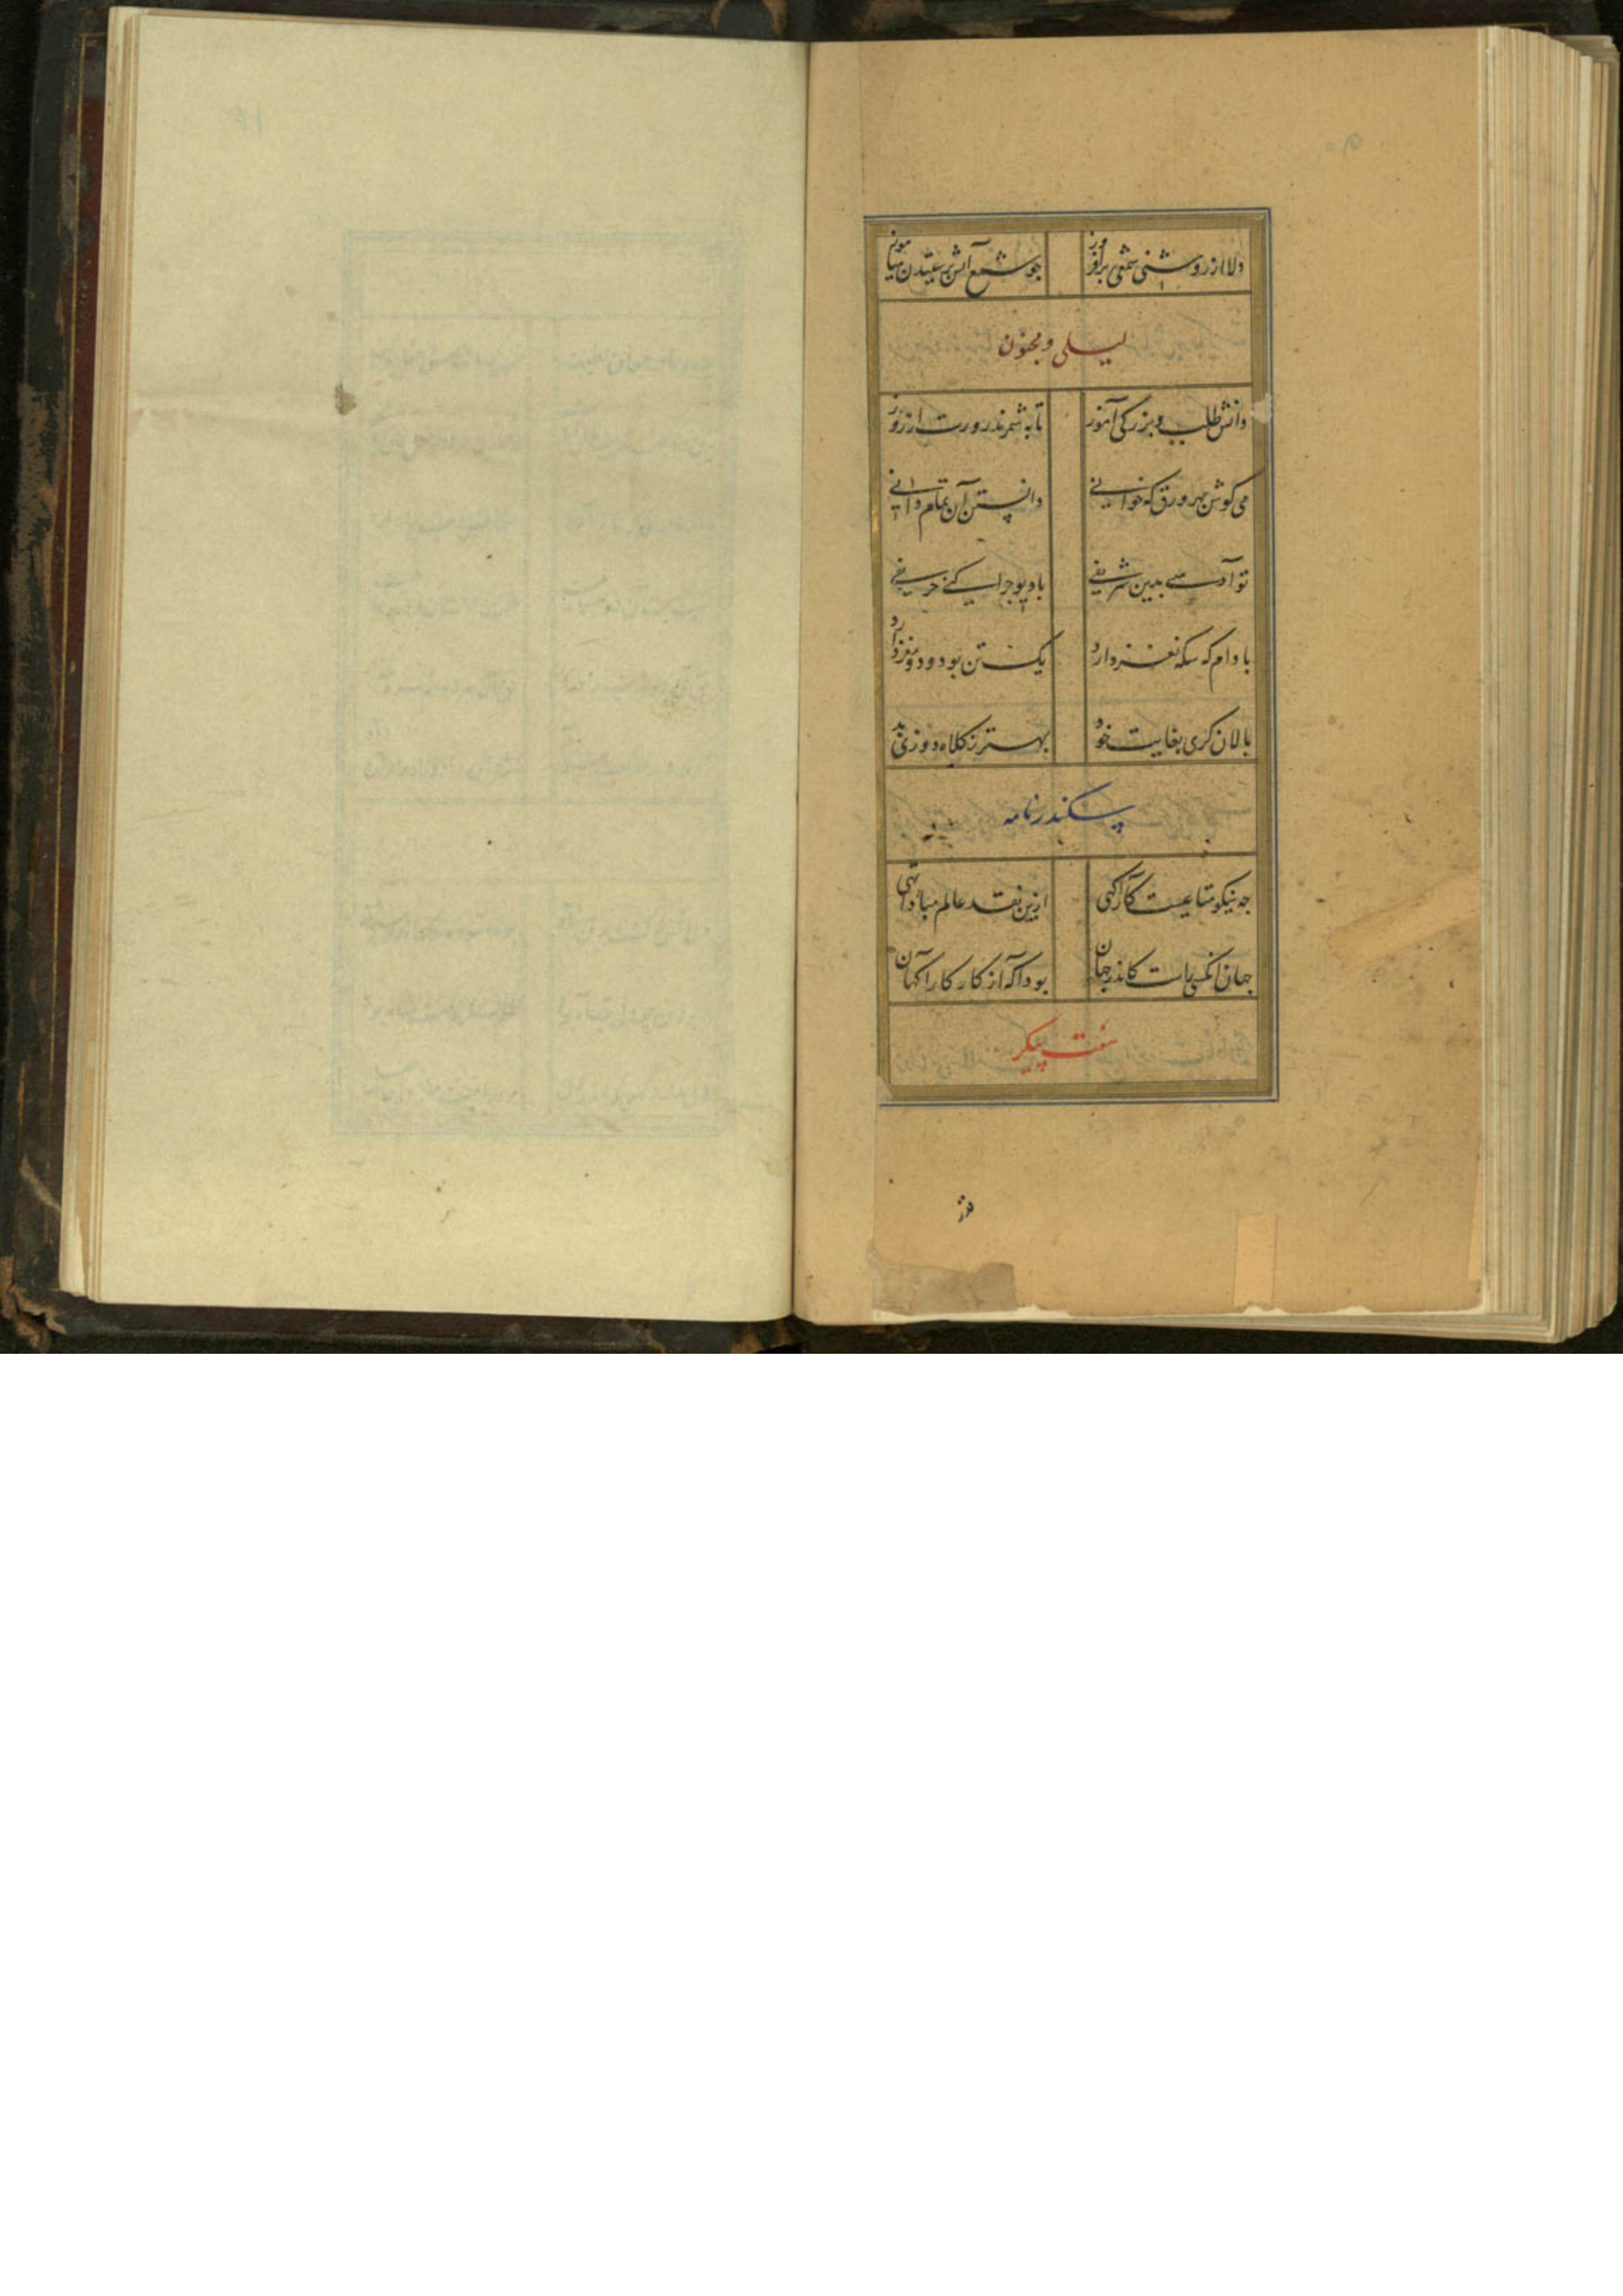 دلا از روشنی شمعی برافروز جو شمع آتش پرستیدن میاموز
لیلی و مجنون
دانش طلب و بزرکی آموز تا به شمرند روزت از روز
می کوش بهر ورق که خوانی دانستن آن تمام دانی
تو آدمی بدین شریفی با دیو جرا کنی حریفی
بادام که سکه نغز دارد یک تن بود و دو مغز دارد
بالان کری بغایت خود بهتر ز کلاه دوزی بد
سکندرنامه
جه نیکو متاعیست کار آکهی ازین نقد عالم مبادا تهی
جهان انکسی راست کاندر جهان بود آکه از کار کارآکهان
هفت پیکر
قدر